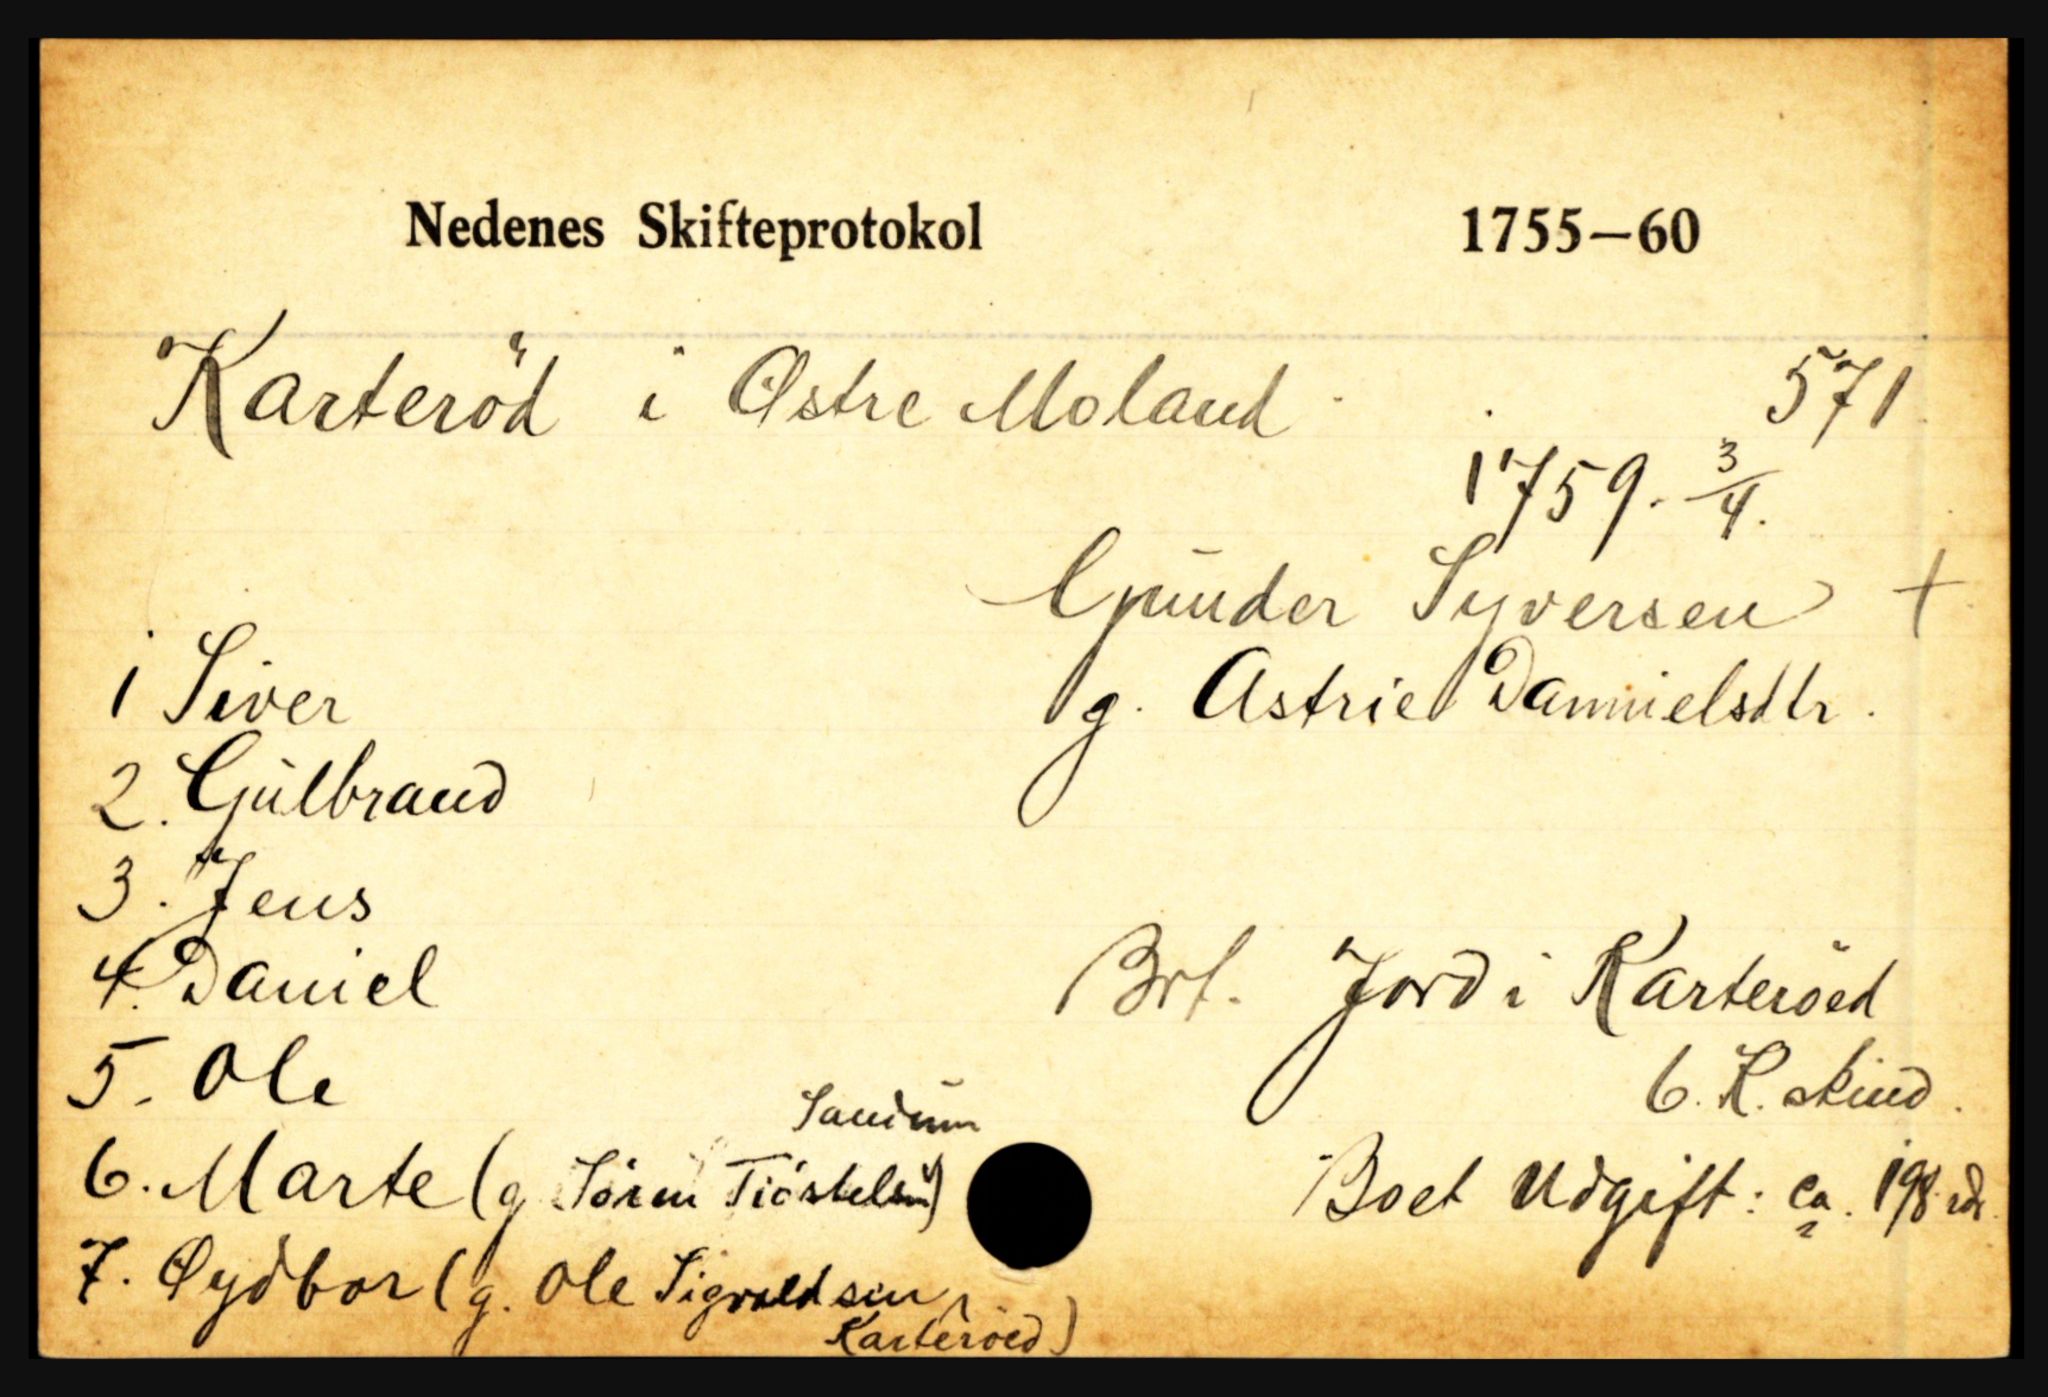 Nedenes Skifteprotokol 1755—60
Karteröd i Østre Moland 571
1759. 3/4.
Gunder Syversen +
g. Astrie Dannielsdtr.
1 Siver
2. Gulbrand
3. Jens
4. Daniel
5. Ole
6. Marte (g. Sören Tiöstelsen Sandum)
7. Øydbor (g. Ole Sigvaldsen Karteröed)
Brt. Jord i Karteröed
6. K. skind.
Boet Udgift: ca. 198 rdr.